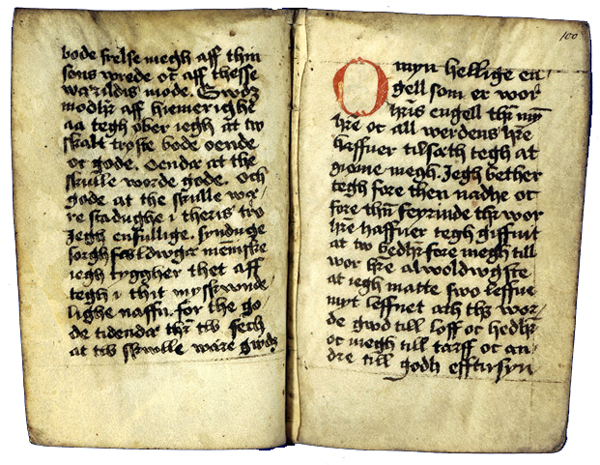 bode frelse megh aff thin
sons wrede oc aff thesse
werildis mode. Gwdz
modhr aff hiemerighr
aa tegh ober iegh at tw
skalt tryste bode oende
oc gode. Oendr at the
skulle worde gode. Och
gode at the skulle wæ
re stadughe i theris tro
Jegh enfullige. syndughe
sorghfuldwgr menniske
iegh tygger thet aff
tegh i thit myskwnde
lighe naffn. for the go
de tidendr thr tis fech
at tw skulle ware gwdz
100
O myn hellige en
gell som er wor
hris engell thr myn
hre oc all werdens hre
haffuer tilsæth tegh at
giome megh. Jegh bether
tegh fore then nadhe oc
fore thn feyrinde thr wor
hre haffuer tegh giffuit
at tw bedhr fore megh till
wor hre alwoldwgste
at iegh matte swo leffue
myt leffnet ath thz wor
de gwd till loff oc hedhr
oc megh till tarff oc an
dre till godh efftirsyn